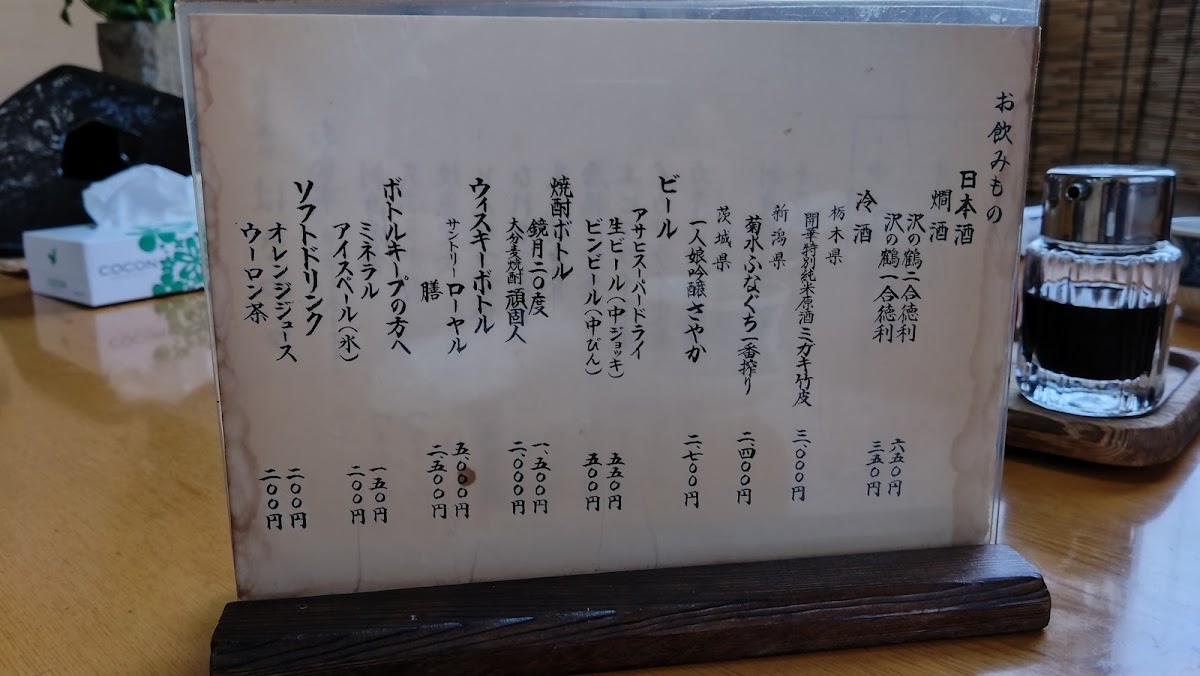 お飲みもの
日本酒
燗酒
沢の鶴 二合徳利 六五〇円
沢の鶴 一合徳利 三五〇円
冷酒
栃木県
開華特別純米原酒 ミガキ竹皮 三、〇〇〇円
新潟県
菊水ふなぐち一番搾り 二、四〇〇円
茨城県
一人娘吟醸さやか 二、七〇〇円
ビール
アサヒスーパードライ
生ビール(中ジョッキ) 五五〇円
ビンビール(中びん) 五〇〇円
焼酎ボトル
鏡月二〇度 一、五〇〇円
大分麦焼酎 頑固人 二、〇〇〇円
ウィスキーボトル
サントリー ローヤル 五、〇〇〇円
膳 二、五〇〇円
ボトルキープの方へ
ミネラル 一五〇円
アイスペール(氷) 二〇〇円
ソフトドリンク
オレンジジュース 二〇〇円
ウーロン茶 二〇〇円